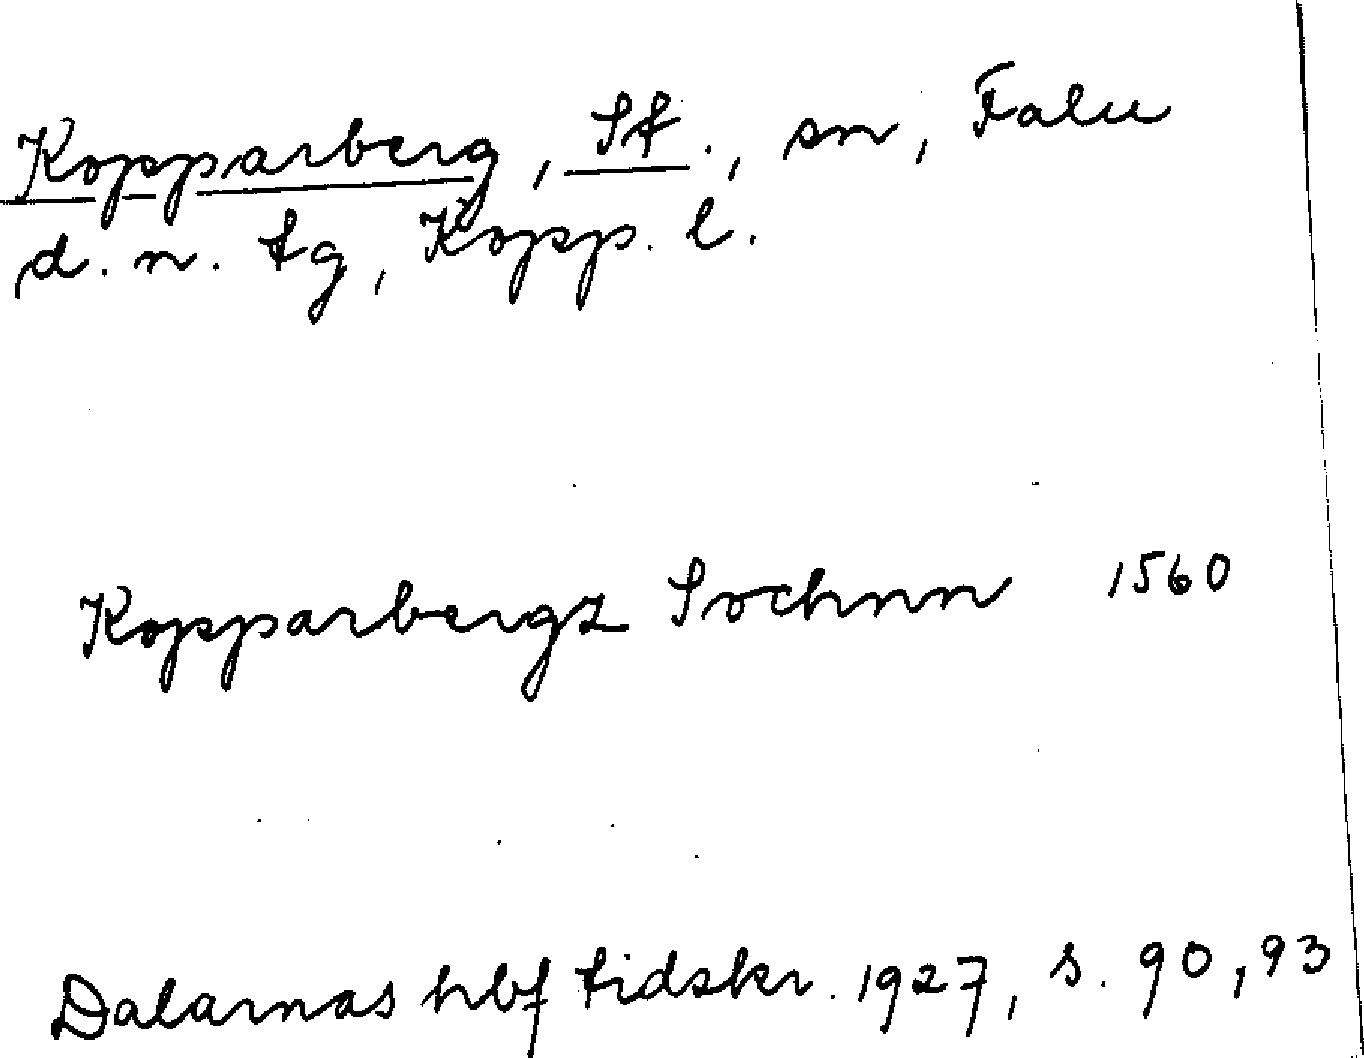 Kopparberg, St., sn, Falu
d. n. tg, Kopp. l.
Kopparbergz Sochnn 1560
Dalarnas hbf tidskr. 1927, s. 90, 93